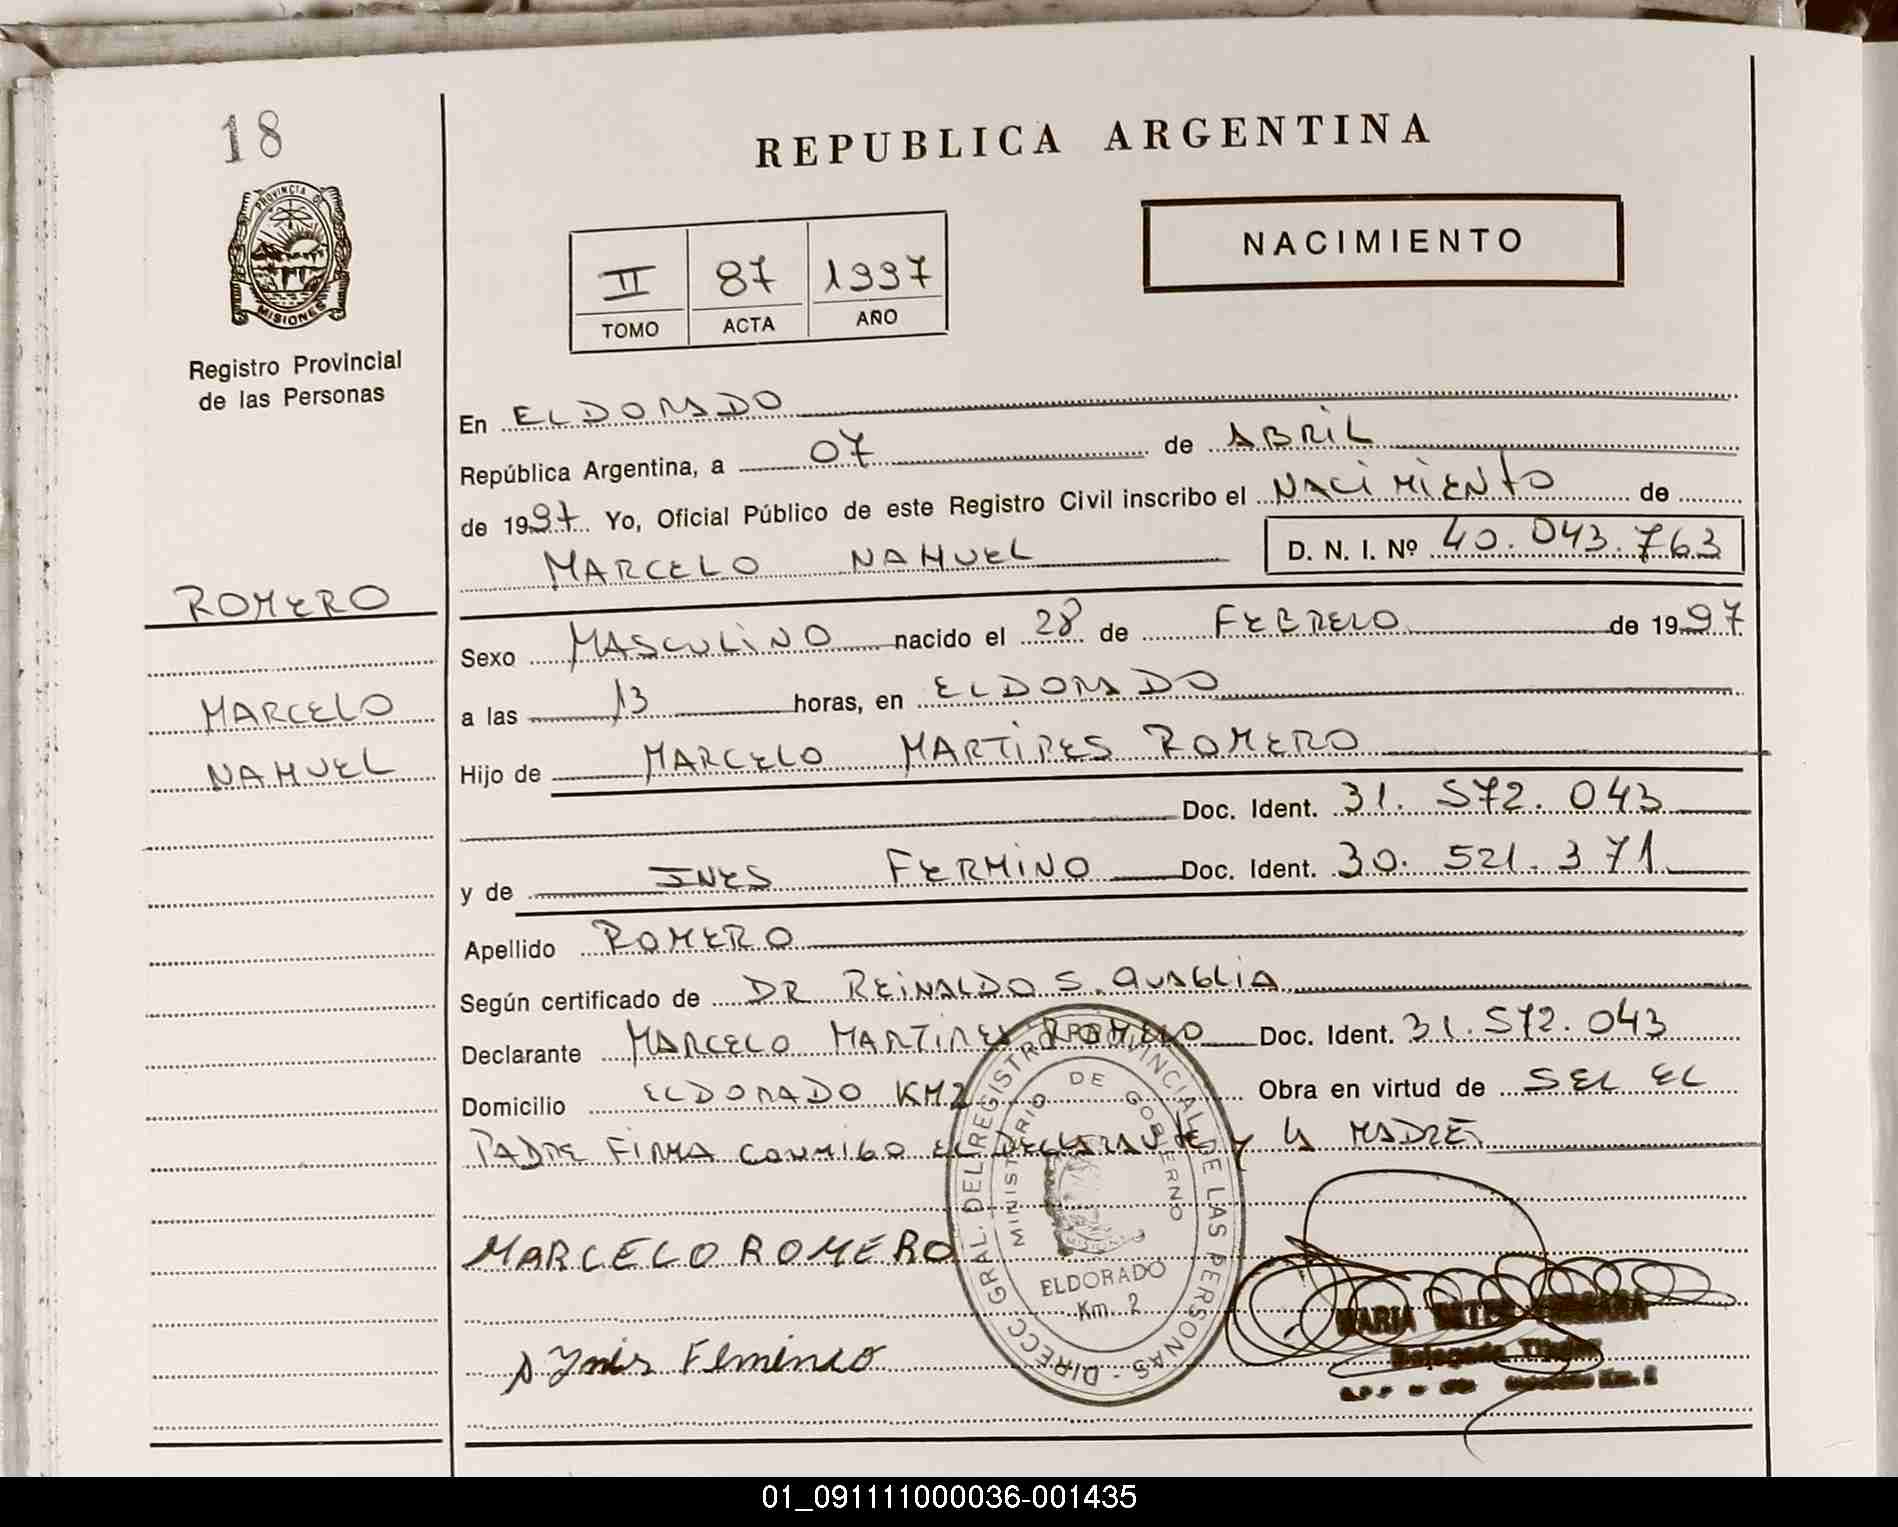 18
REPUBLICA ARGENTINA
PROVINCIA DE
MISIONES
Registro Provincial
de las Personas
II 87 1997
TOMO ACTA AÑO
NACIMIENTO
En ELDORADO
República Argentina, a 07 de ABRIL
de 1997 Yo, Oficial Público de este Registro Civil inscribo el NACIMIENTO de
MARCELO NAHUEL D. N. I. Nº 40.043.763
ROMERO
MARCELO
NAHUEL
Sexo MASCULINO nacido el 28 de FEBRERO de 1997
a las 13 horas, en ELDORADO
Hijo de MARCELO MARTIRES ROMERO
Doc. Ident. 31.572.043
y de INES FERMINO Doc. Ident. 30.521.371
Apellido ROMERO
Según certificado de DR REINALDO S. QUAGLIA
Declarante MARCELO MARTIRES ROMERO Doc. Ident. 31.572.043
Domicilio ELDORADO KM2 Obra en virtud de SER EL
PADRE FIRMA CONMIGO EL DECLARANTE Y LA MADRE
MARCELO ROMERO
DIRECC. GRAL. DEL REGISTRO PROVINCIAL DE LAS PERSONAS
MINISTERIO DE GOBIERNO
MISIONES
ELDORADO
Km. 2
MARIA
Delegada Titular
Km. 2
01_091111000036-001435